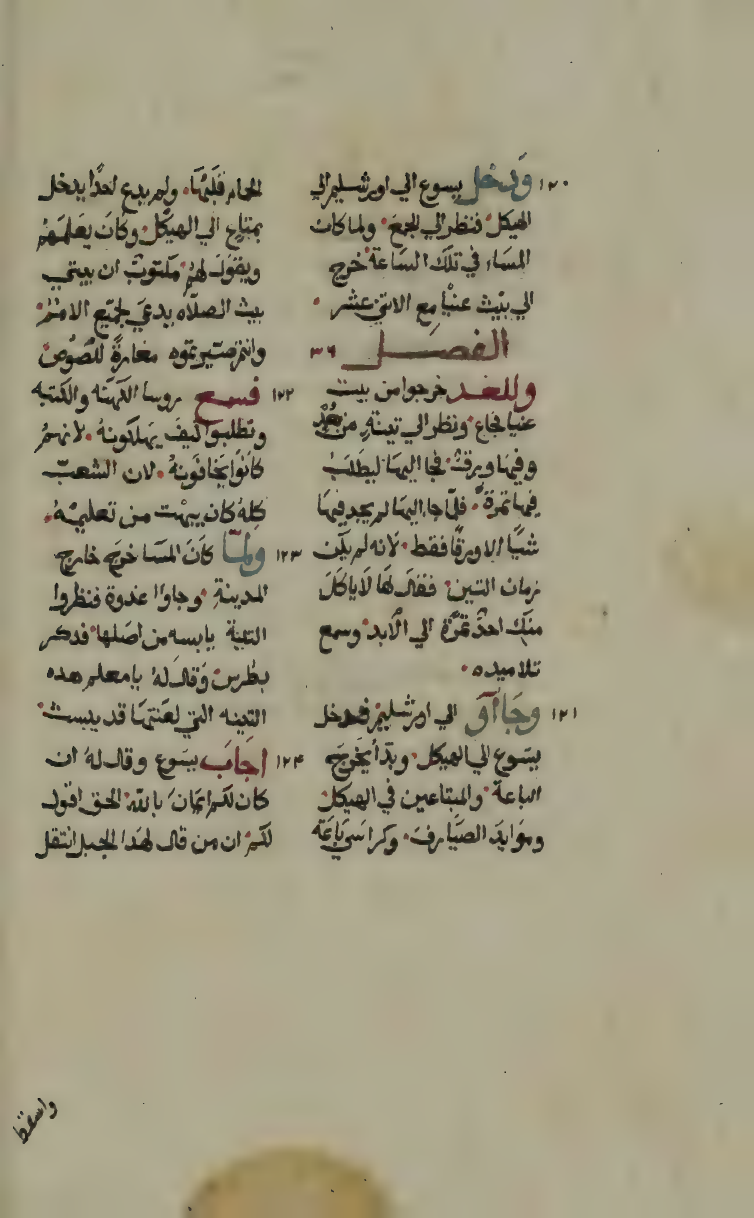 ١٢٠ ودخل يسوع الي اورشليم الي
الهيكل فنظر الي الجمع ولما كان
المساء في تلك الساعة خرج
الي بيت عنيا مع الاتني عشر
الفصل ٣٦
وللغد خرجوا من بيت
عنيا فجاع ونظر الي تينة من بعد
وفيها ورق فجا اليها ليطلب
فيها تمرة فلما جاء اليها لم يجد فيها
شيا الا ورقا فقط لانه لم يكن
زمان التين فقال لها لا ياكل
منك احد تمرة الي الابد وسمع
تلاميده
١٢١ وجاآوا الي اورشليم فدخل
يسوع الي الهيكل وبدا يخرج
الباعة والمبتاعين في الهيكل
وموايد الصيارف وكراسي باعة
الحمام قلبها ولم يدع احدا يدخل
بمتاع الي الهيكل وكان يعلمهم
ويقول لهم مكتوب ان بيتي
بيت الصلاه يدعي لجميع الامم
وانتم صيرتموه مغارة للصوص
١٢٢ فسمع روسا الكهنه والكتبه
وتطلبوا كيف يهلكونه لانهم
كانوا يخافونه لان الشعب
كله كان يبهت من تعليمه
١٢٣ ولما كان المسا خرج خارج
المدينة وجاوا غدوة فنظروا
التينة يابسه من اصلها فدكر
بطرس وقال له يا معلم هده
التينه التي لعنتها قد يبست
١٢٤ اجاب يسوع وقال له ان
كان لكم ايمان بالله الحق اقول
لكم ان من قال لهدا الجبل انتقل
واسقط